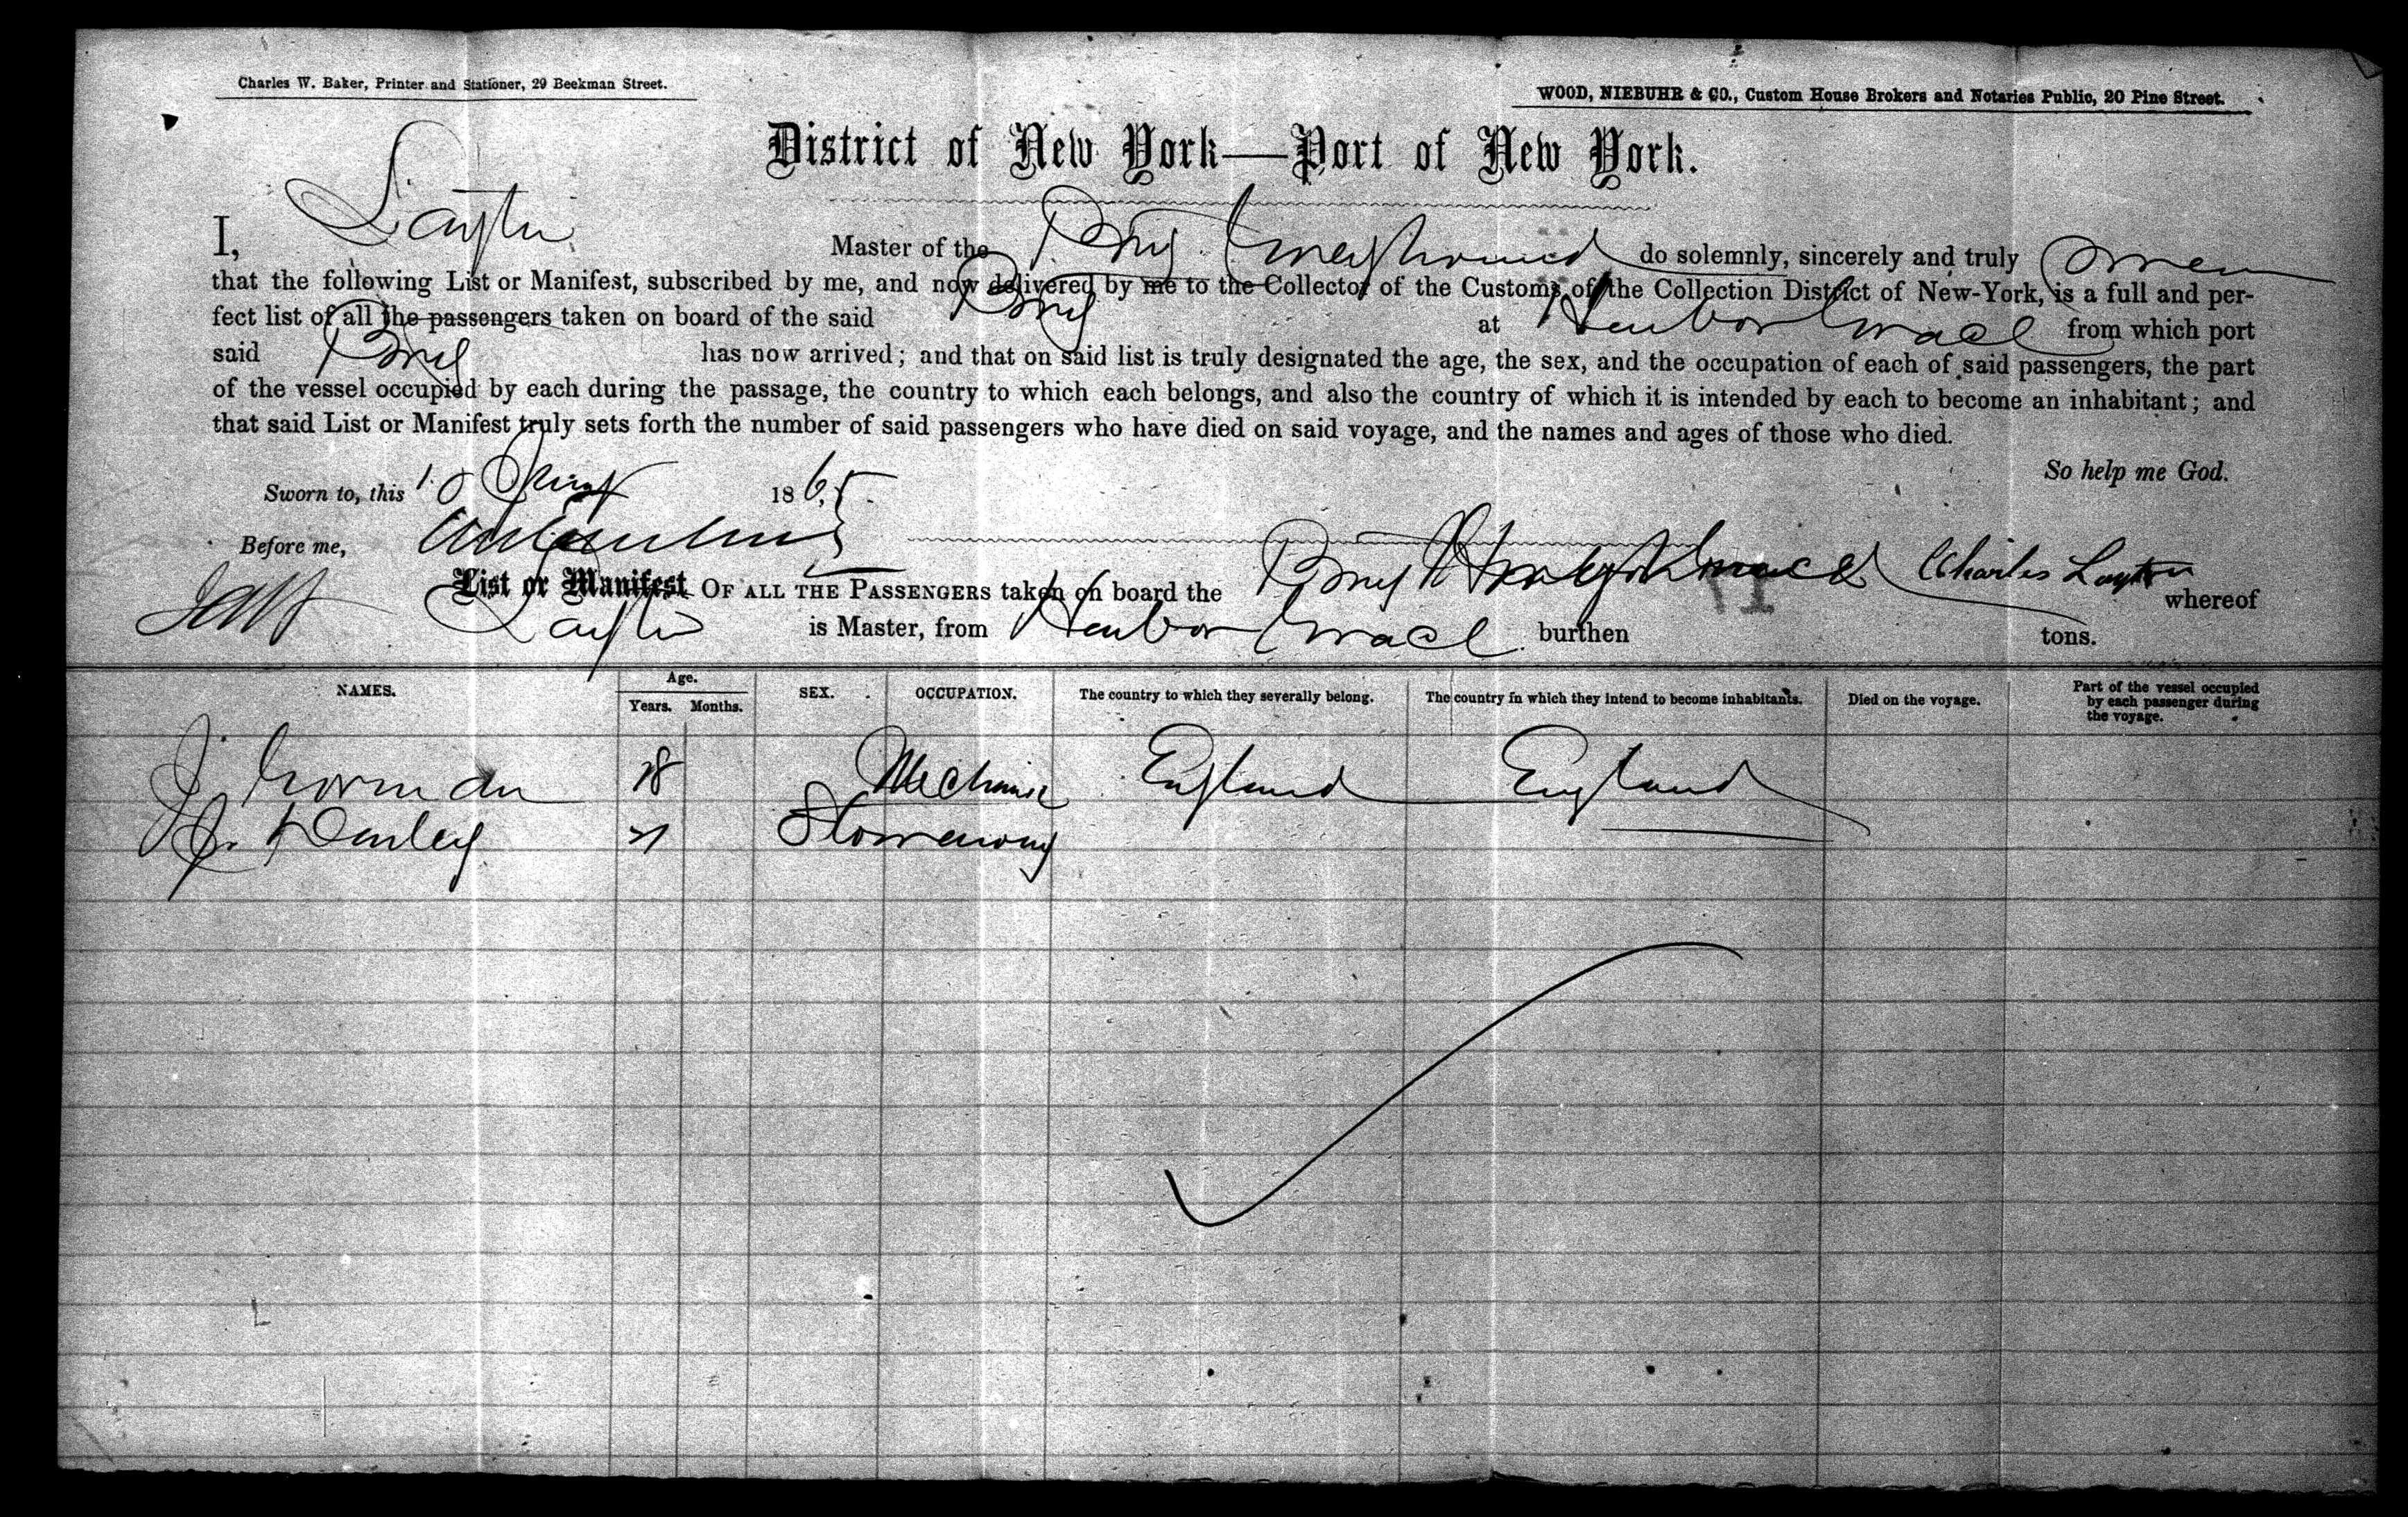 Charles W. Baker, Printer and Stationer, 29 Beekman Street.
WOOD, NIEBUHR & CO., Custom House Brokers and Notaries Public, 20 Pine Street.
District of New York—Port of New York.
I, Layton Master of the Brig Greyhound do solemnly, sincerely and truly swear
that the following List or Manifest, subscribed by me, and now delivered by me to the Collector of the Customs of the Collection District of New-York, is a full and per-
fect list of all the passengers taken on board of the said Brig at Harbor Grace from which port
said Brig has now arrived; and that on said list is truly designated the age, the sex, and the occupation of each of said passengers, the part
of the vessel occupied by each during the passage, the country to which each belongs, and also the country of which it is intended by each to become an inhabitant; and
that said List or Manifest truly sets forth the number of said passengers who have died on said voyage, and the names and ages of those who died.
So help me God.
Sworn to, this 10 1865
Before me,
Charles Layton
List or Manifest OF ALL THE PASSENGERS taken on board the Brig whereof
Layton is Master, from Harbor Grace burthen tons.
NAMES. Age. Years. Months. SEX. OCCUPATION. The country to which they severally belong. The country in which they intend to become inhabitants. Died on the voyage. Part of the vessel occupied by each passenger during the voyage.
J. Gorman 28 Mechanic England England
Danley 21 Stowaway